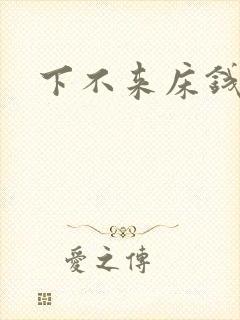 下不来床钱
愛之傳